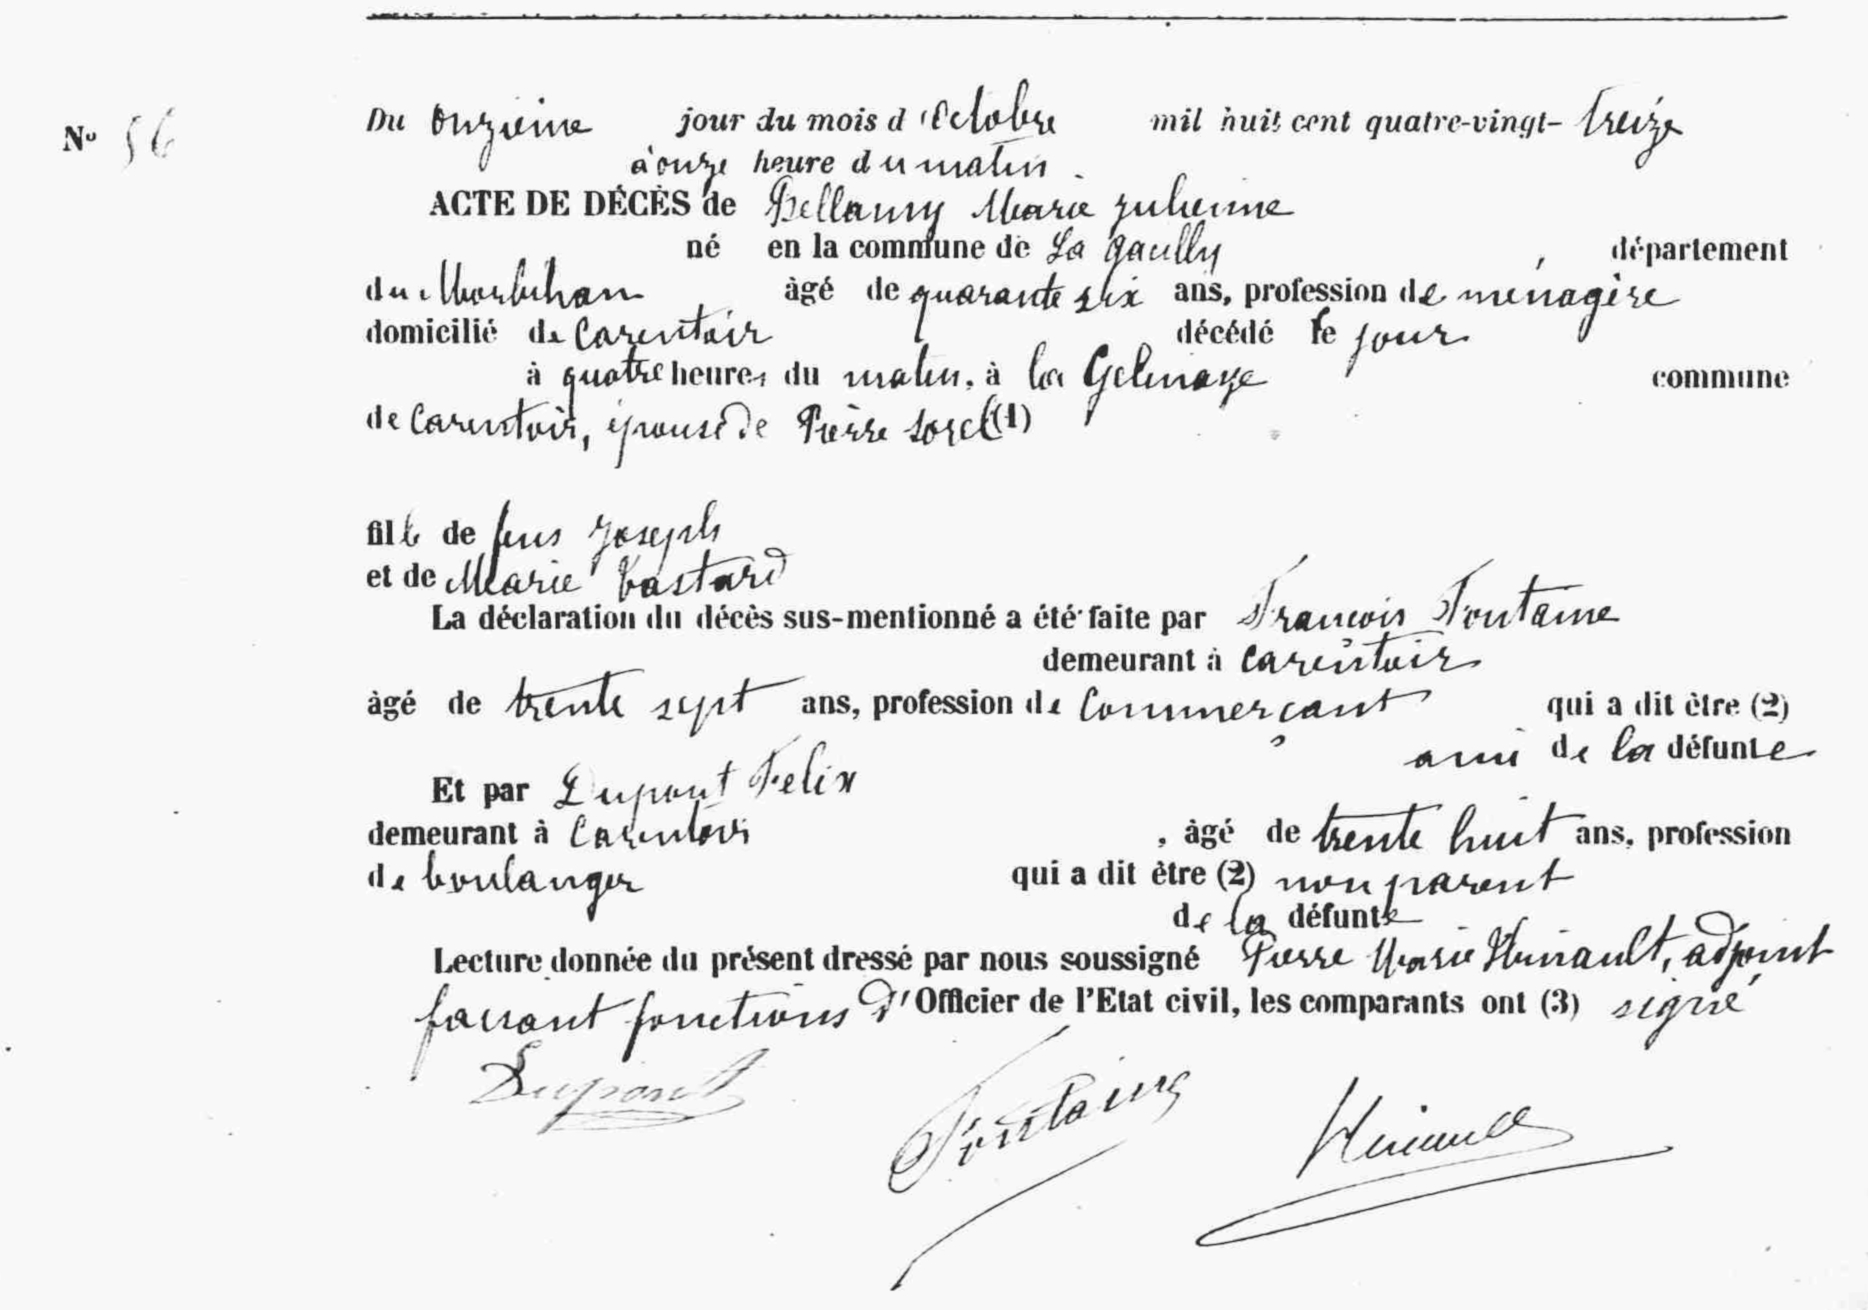 Nº 56
Du onzième jour du mois d'Octobre mil huit cent quatre-vingt-treize
à onze heure du matin.
ACTE DE DÉCÈS de Bellamy Marie Julienne
né en la commune de La Gacilly, département
du Morbihan âgé de quarante six ans, profession de ménagère
domicilié de Carentoir décédé le jour
à quatre heures du matin, à la Gelinaye commune
de Carentoir, épouse de Pierre Sorel (1)
fille de feus Joseph
et de Marie Bastard
La déclaration du décès sus-mentionné a été faite par François Fontaine
demeurant à Carentoir
âgé de trente sept ans, profession de Commerçant qui a dit être (2)
ami de la défunte
Et par Dupont Felix
demeurant à Carentoir, âgé de trente huit ans, profession
de boulanger qui a dit être (2) non parent
de la défunte
Lecture donnée du présent dressé par nous soussigné Pierre Marie Hinault, adjoint
faisant fonctions d'Officier de l'Etat civil, les comparants ont (3) signé
Dupont Fontaine Hinault